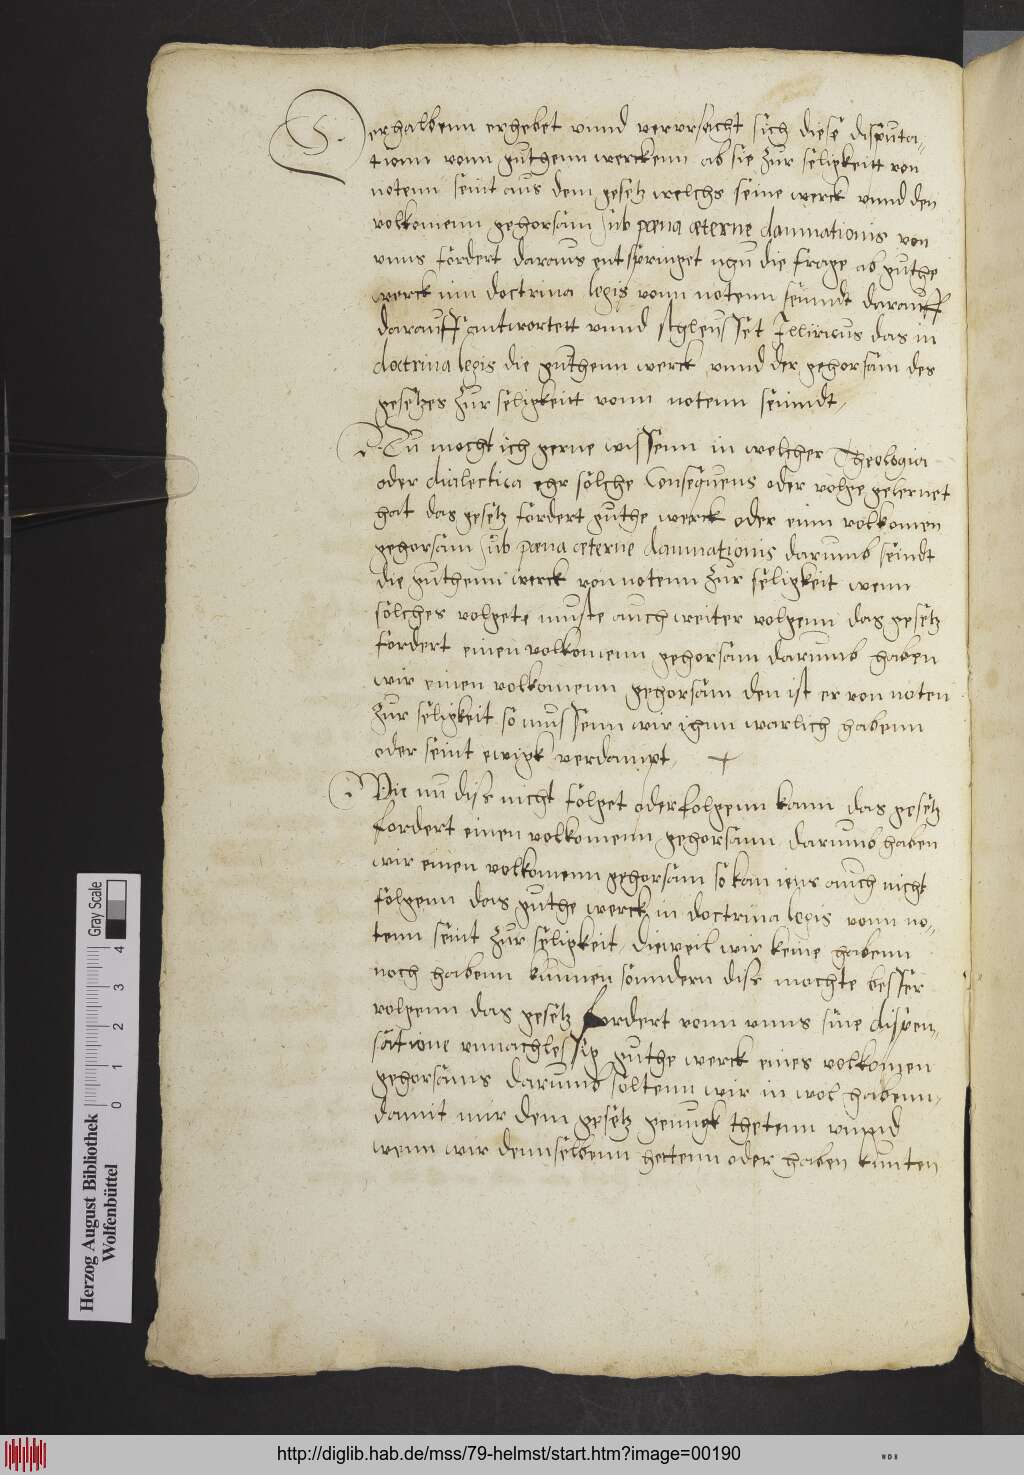 Derhalbenn ergebet unnd verursacht sich diese disputa-
tionn vonn guthenn werckenn ab sie zur seligkeitt von
notenn seint aus dem gesetz welchs seine werck unnd den
volkomenn gehorsam sub pœna æterne damnationis von
unns fördert daraus entspringet nŭ die frage ab guthe
werck inn doctrina legis vonn notenn seinndt darauff
darauff antwortett unnd schleusset Illiricus das in
doctrina legis die guthenn werck unnd der gehorsam des
gesetzes zur seligkeitt vonn notenn seinndt,
Nu mocht ich gerne wissenn in welcher Theologia
oder dialectica ehr solche Consequens oder volge gelernet
hat das gesetz fördert guthe werck oder einn volkomen
gehorsam sub pœna æterne damnationis darumb seindt
die guthenn werck vonnotenn zur seligkeit wenn
solches volgete muste auch weiter volgenn das gesetz
fördert einen volkomenn gehorsam darumb haben
wir einen volkomenn gehorsam den ist er von noten
zur seligkeit so mussenn wir ihnn warlich habenn
oder seint ewigk verdampt,
Wie nu diss nicht folget oder folgenn kann das gesetz
fordert einen volkomenn gehorsam darumb haben
wir einen volkomenn gehorsam so kan iens auch nicht
folgenn das guthe werck in doctrina legis vonn no-
tenn seint zur seligkeit dieweil wir keine habenn
noch habenn kunnen sonndern diss mochte besser
volgenn das gesetz fordert vonn unns sine dispen-
satione unnachlessig guthe werck eines volkomen
gehorsams darumb soltenn wir in wol habenn,
damit wir dem gesetz genugk thetenn unnd
wenn wir dennselbenn hettenn oder haben kunten
Herzog August Bibliothek
Wolfenbüttel
0 1 2 3 4
Gray Scale
http://diglib.hab.de/mss/79-helmst/start.htm?image=00190
WDB